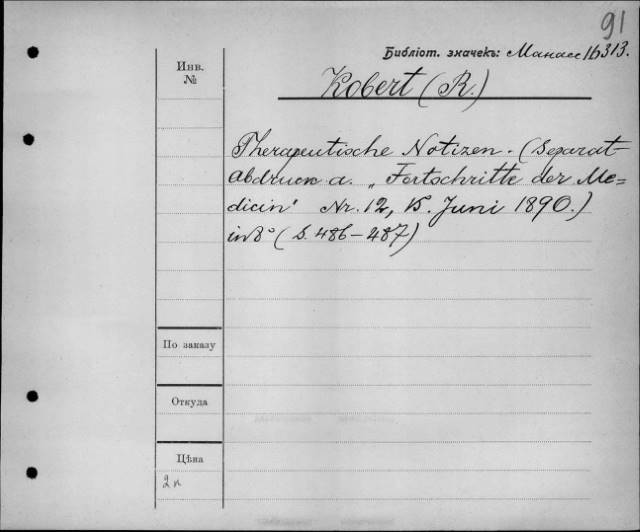 91
Библіот. значекъ: Манасс 16313.
Инв.
№
Kobert (R.)
Therapeutische Notizen. (Separat-
abdruck a. „Fortschritte der Me=
dicin" Nr. 12, 15. Juni 1890.)
in 8° (S. 486-487)
По заказу
Откуда
Цѣна